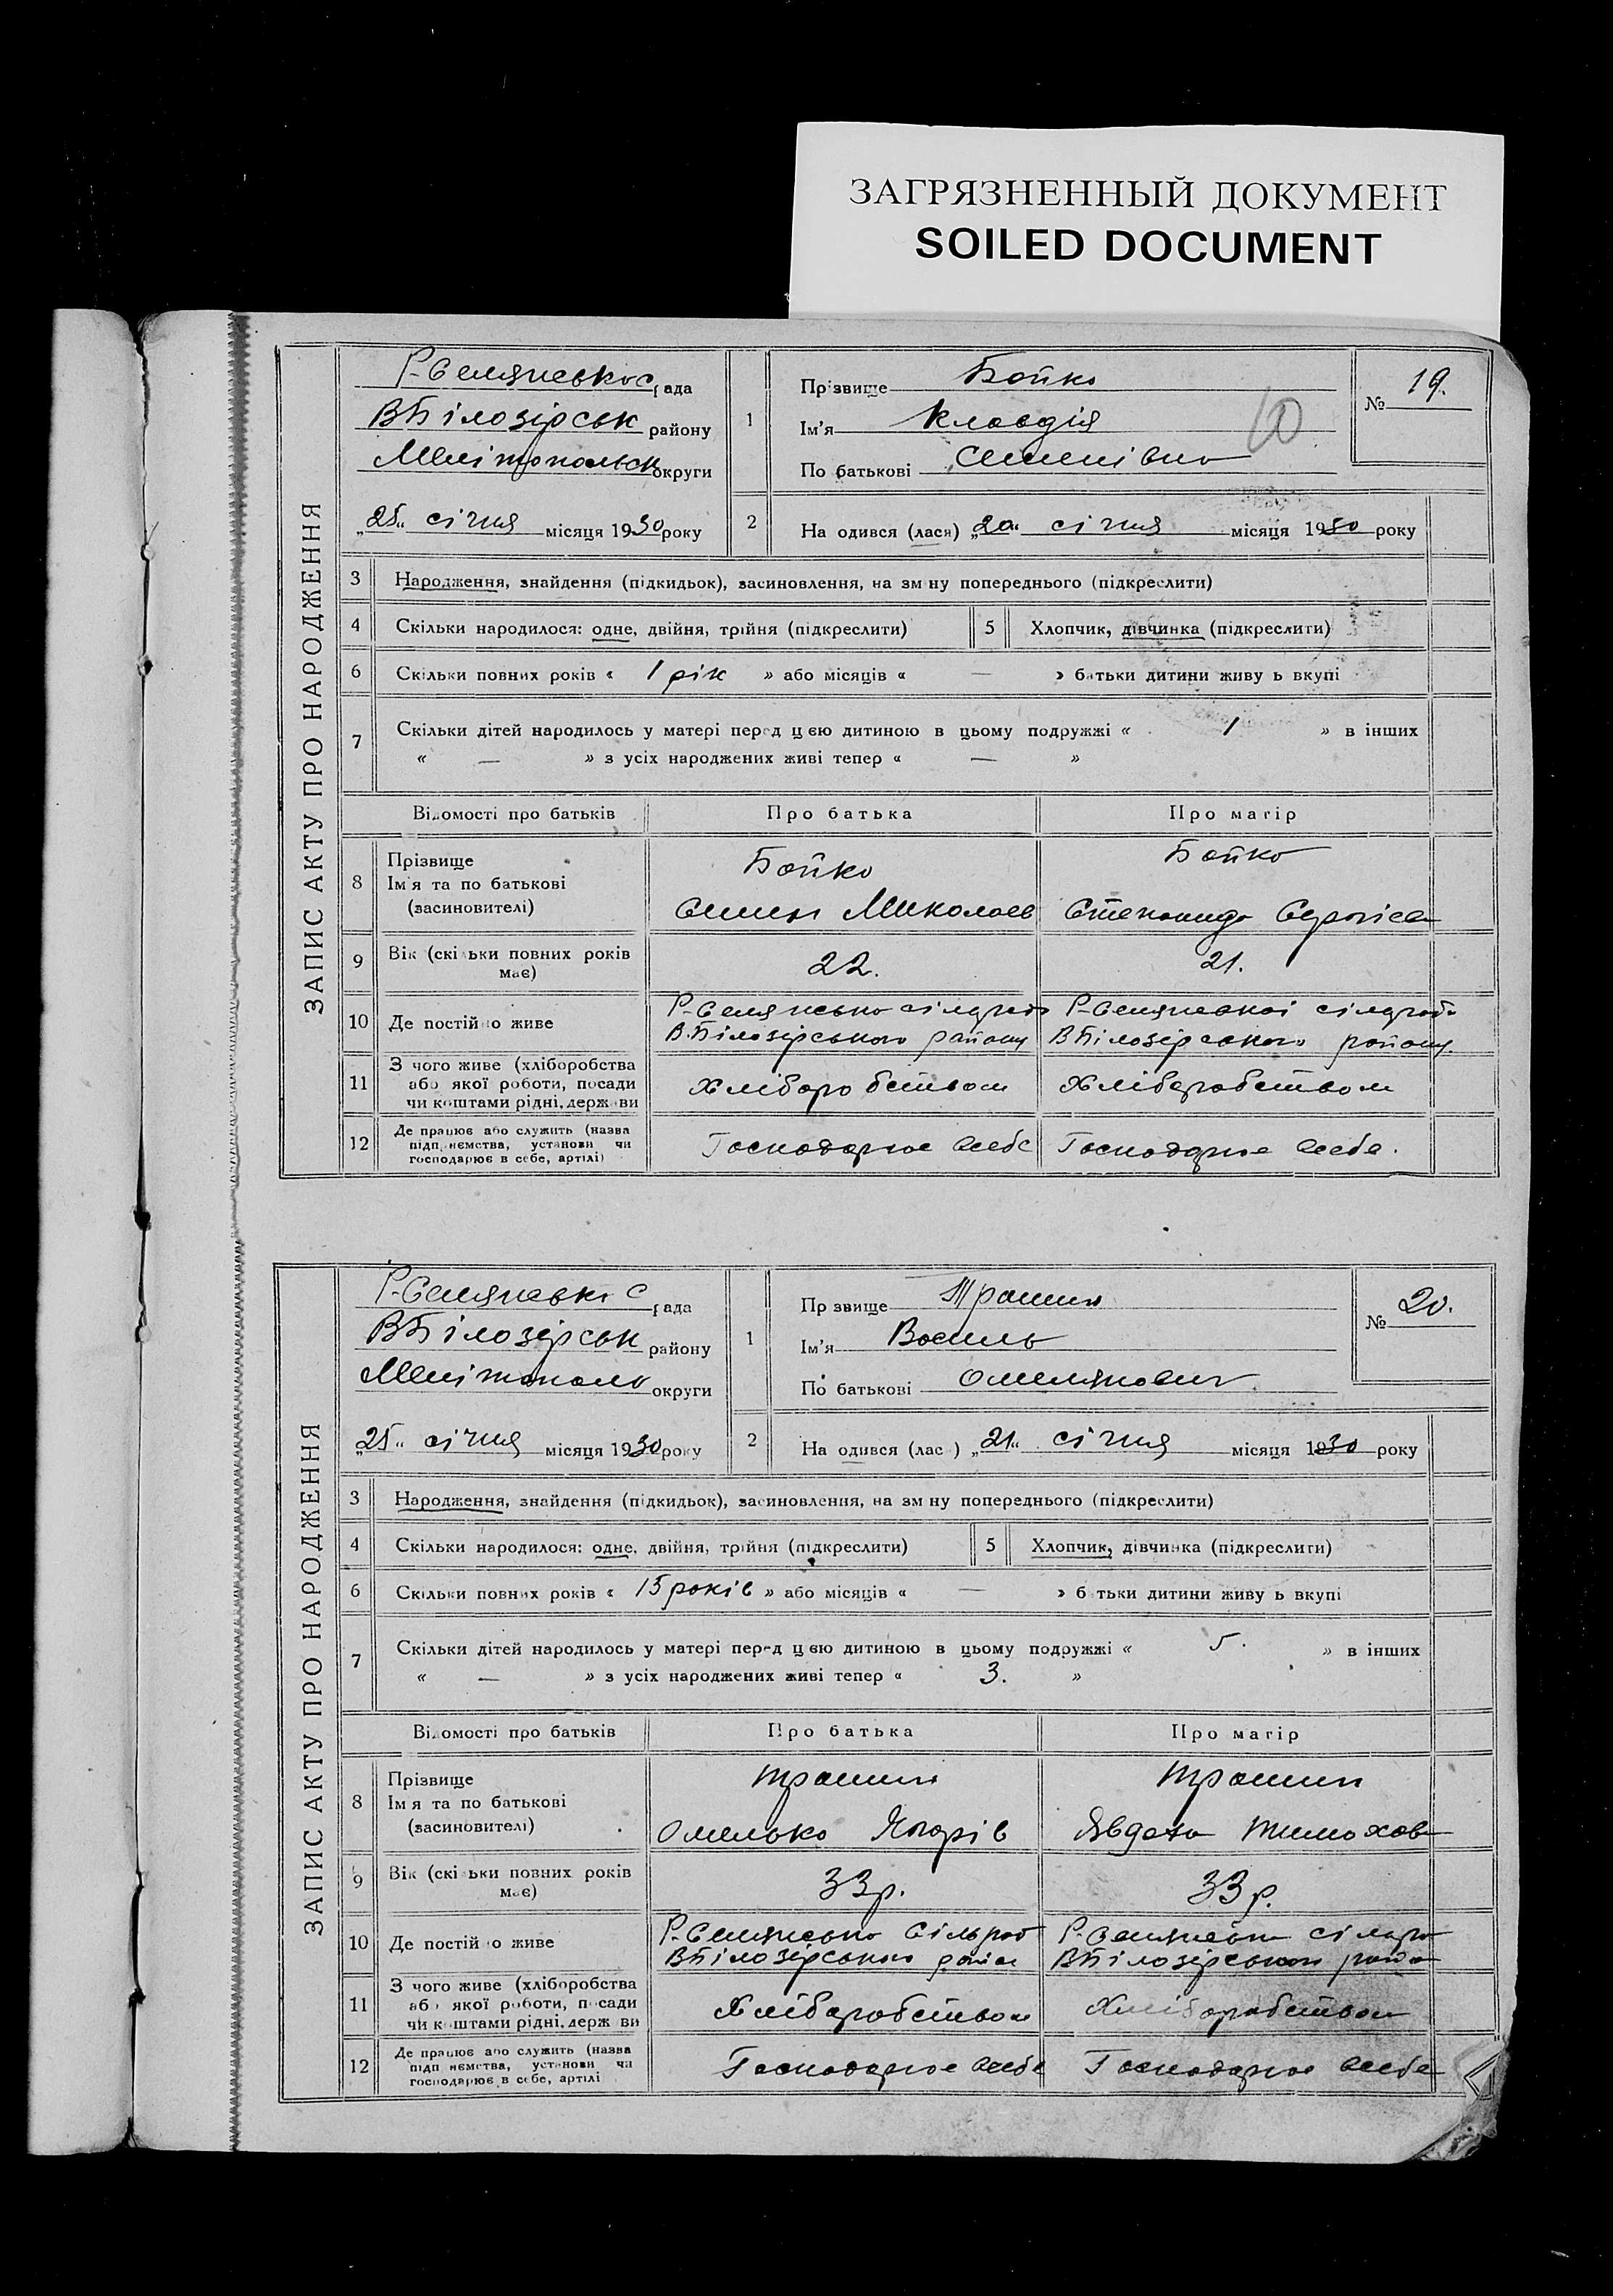 ЗАГРЯЗНЕННЫЙ ДОКУМЕНТ
SOILED DOCUMENT
ЗАПИС АКТУ ПРО НАРОДЖЕННЯ
Р-Селянськ с рада
ВБілозірськ району
Мелітопольск округи
„25“ січня місяця 1930 року
1
Прізвище Бойко
Ім'я Клавдія
По батькові Семенівна
№ 19.
10
2
На одився (лася) „20“ січня місяця 1930 року
3 Народження, знайдення (підкидьок), засиновлення, на зм ну попереднього (підкреслити)
4 Скільки народилося: одне, двійня, трійня (підкреслити) 5 Хлопчик, дівчинка (підкреслити)
6 Скільки повних років « 1 рік » або місяців « — » батьки дитини живу ь вкупі
7 Скільки дітей народилось у матері перед цею дитиною в цьому подружжі « 1 » в інших
« — » з усіх народжених живі тепер « — »
Відомості про батьків Про батька Про матір
8 Прізвище
Ім'я та по батькові
(засиновителі)
Бойко
Семен Миколаєв
Бойко
Степанида Сергієв
9 Вік (скільки повних років
має)
22. 21.
10 Де постійно живе
Р-Селянсько сілради
В.Білозірського району
Р-Селянської сілради
ВБілозірського району.
11 З чого живе (хліборобства
або якої роботи, посади
чи коштами рідні, держ ви
Хліборобством Хліборобством
12 Де працює або служить (назва
підприємства, установи чи
господарює в себе, артілі)
Господарює всебе Господарює всебе.
ЗАПИС АКТУ ПРО НАРОДЖЕННЯ
Р-Селянськ с рада
ВБілозірськ району
Мелітополь округи
„25“ січня місяця 1930 року
1
Пр звище
Ім'я Василь
По батькові Омелянович
№ 20.
2
На одився (лас ) „21“ січня місяця 1930 року
3 Народження, знайдення (підкидьок), засиновлення, на зм ну попереднього (підкреслити)
4 Скільки народилося: одне, двійня, трійня (підкреслити) 5 Хлопчик, дівчинка (підкреслити)
6 Скільки повних років « 15 років » або місяців « — » б тьки дитини живу ь вкупі
7 Скільки дітей народилось у матері перед цею дитиною в цьому подружжі « 5. » в інших
« — » з усіх народжених живі тепер « 3. »
Відомості про батьків Про батька Про матір
8 Прізвище
Ім я та по батькові
(засиновителі)
Омелько
Явдоха Тимохов
9 Вік (скі ьки повних років
має)
33р. 33р.
10 Де постій о живе
Р-Селянсько Сільрад
ВБілозірського район
Р-Селянсько сілра
ВБілозірського райо
11 З чого живе (хліборобства
аб якої роботи, посади
чи к штами рідні, держ ви
Хліборобством Хліборобством
12 Де працює або служить (назва
підп иємства, установи чи
господарює в себе, артілі
Господарює всебе Господарює всебе